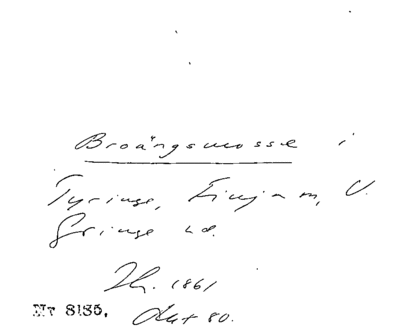 Broängsmosse i
Tyringe, Finja m, V.
Göinge hd.
Th. 1861
Nr 8185. Akt 80.